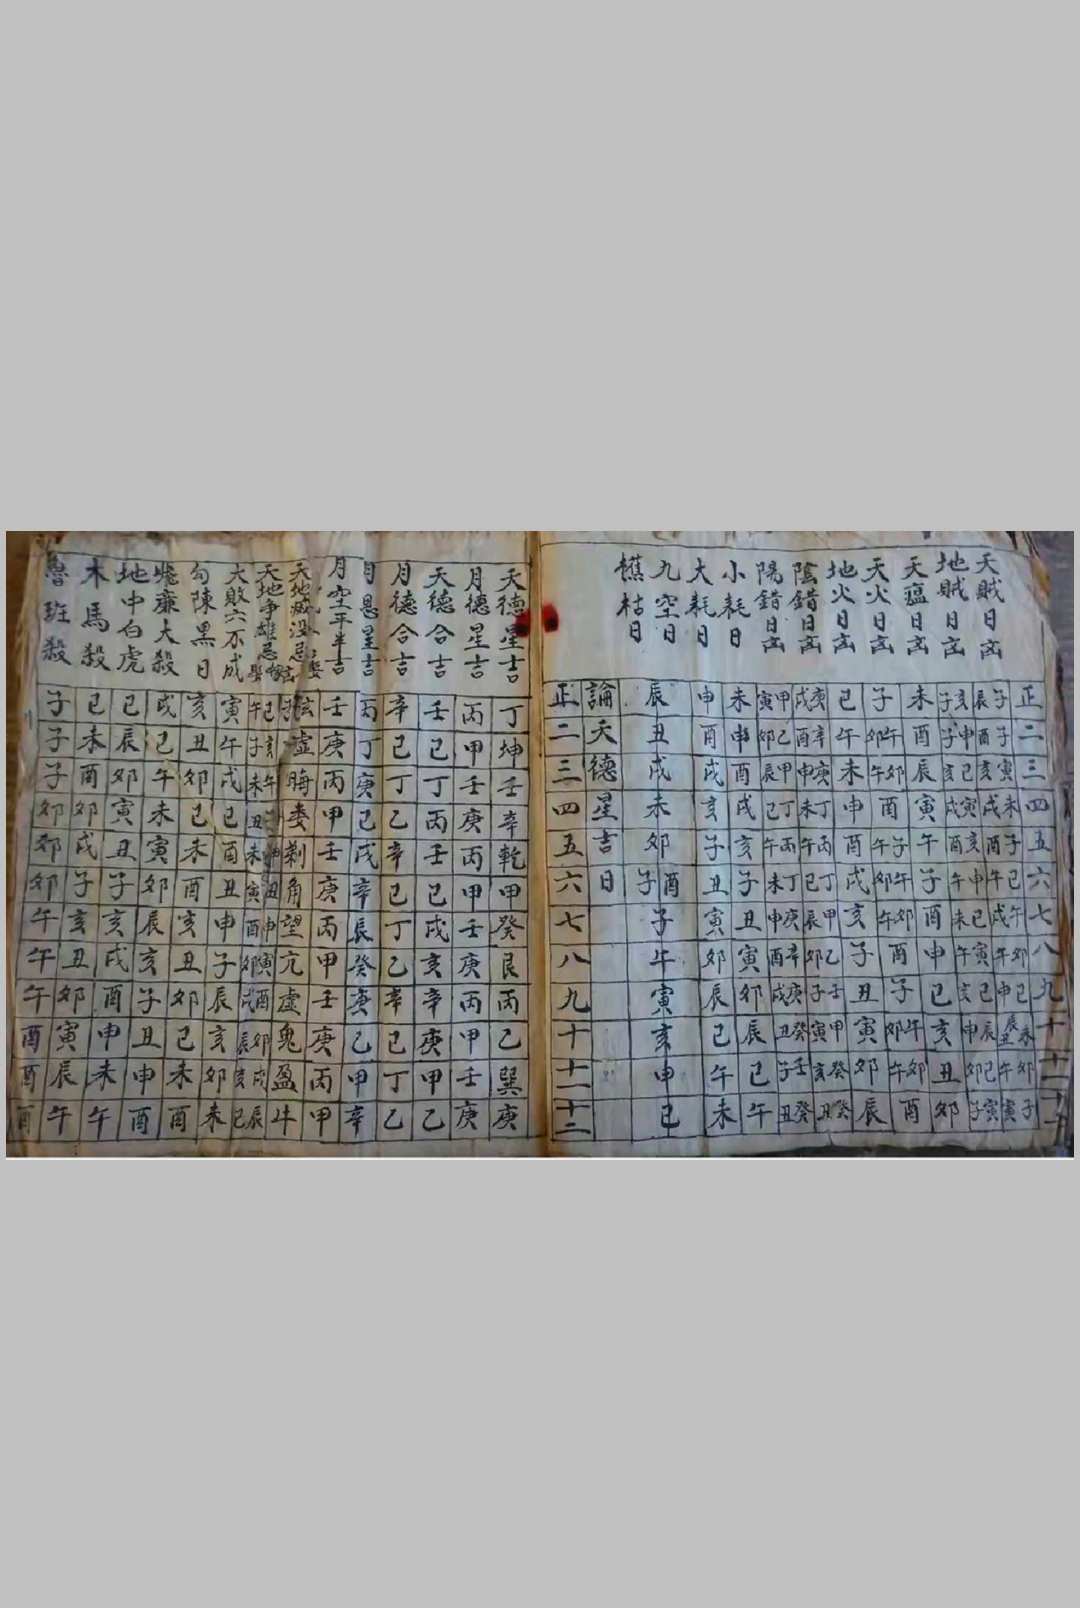 天賊日凶
地賊日凶
天瘟日凶
天火日凶
地火日凶
陰錯日凶
陽錯日凶
小耗日
大耗日
九空日
樵枯日
正二三四五六七八九十十一十二
子辰子酉寅亥未戌子酉巳午午戌卯午巳申未辰丑卯午子寅
亥子申子巳亥寅戌亥酉申午巳未寅午巳亥辰申巳卯寅子
未酉辰寅午子酉申巳亥丑卯
子午卯卯午酉子午午卯卯午酉子午卯卯午酉
巳午未申酉戌亥子丑寅卯辰
庚戌辛酉庚申丁未丙午丁巳甲辰乙卯壬子甲寅癸亥癸丑
甲寅乙卯甲辰丁巳丙午丁未庚申辛酉庚戌癸丑壬子癸丑
未申酉戌亥子丑寅卯辰巳午
申酉戌亥子丑寅卯辰巳午未
辰丑戌未卯酉子子午寅亥申巳
論天德星吉日
正二三四五六七八九十十一十二
天德星吉
月德星吉
天德合吉
月德合吉
月恩星吉
月空平半吉
天地滅沒忌
天地争雄忌
大敗六不成
勾陳黑日
飛廉大殺
地中白虎
木馬殺
魯班殺
丁坤壬辛乾甲癸艮丙乙巽庚
丙甲壬庚丙甲壬庚丙甲壬庚
壬己丁丙壬己戌亥辛庚甲乙
辛己丁乙辛己丁乙辛己丁乙
丙丁庚己戊辛辰癸庚乙甲辛
壬庚丙甲壬庚丙甲壬庚丙甲
弦虛晦婁朔角望亢虛鬼盈牛
寅午戌巳酉丑申子辰亥卯未
亥丑卯巳未酉亥丑卯巳未酉
戌巳午未寅卯辰亥子丑申酉
巳辰卯寅丑子亥戌酉申未午
巳未酉卯戌子亥丑卯寅辰午
子子子卯卯卯午午午酉酉酉